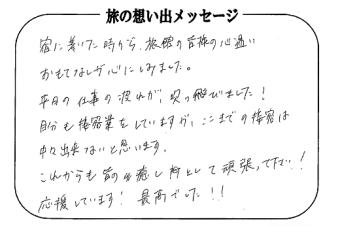 旅の想い出メッセージ
宿に着いた時から、旅館の皆様の心遣い
おもてなしが心にしみました。
平日の仕事の疲れが、吹っ飛びました！
自分も接客業をしていますが、ここまでの接客は
中々出来ないと思います。
これからも皆の癒し所として頑張って下さい！
応援しています！ 最高でした！！